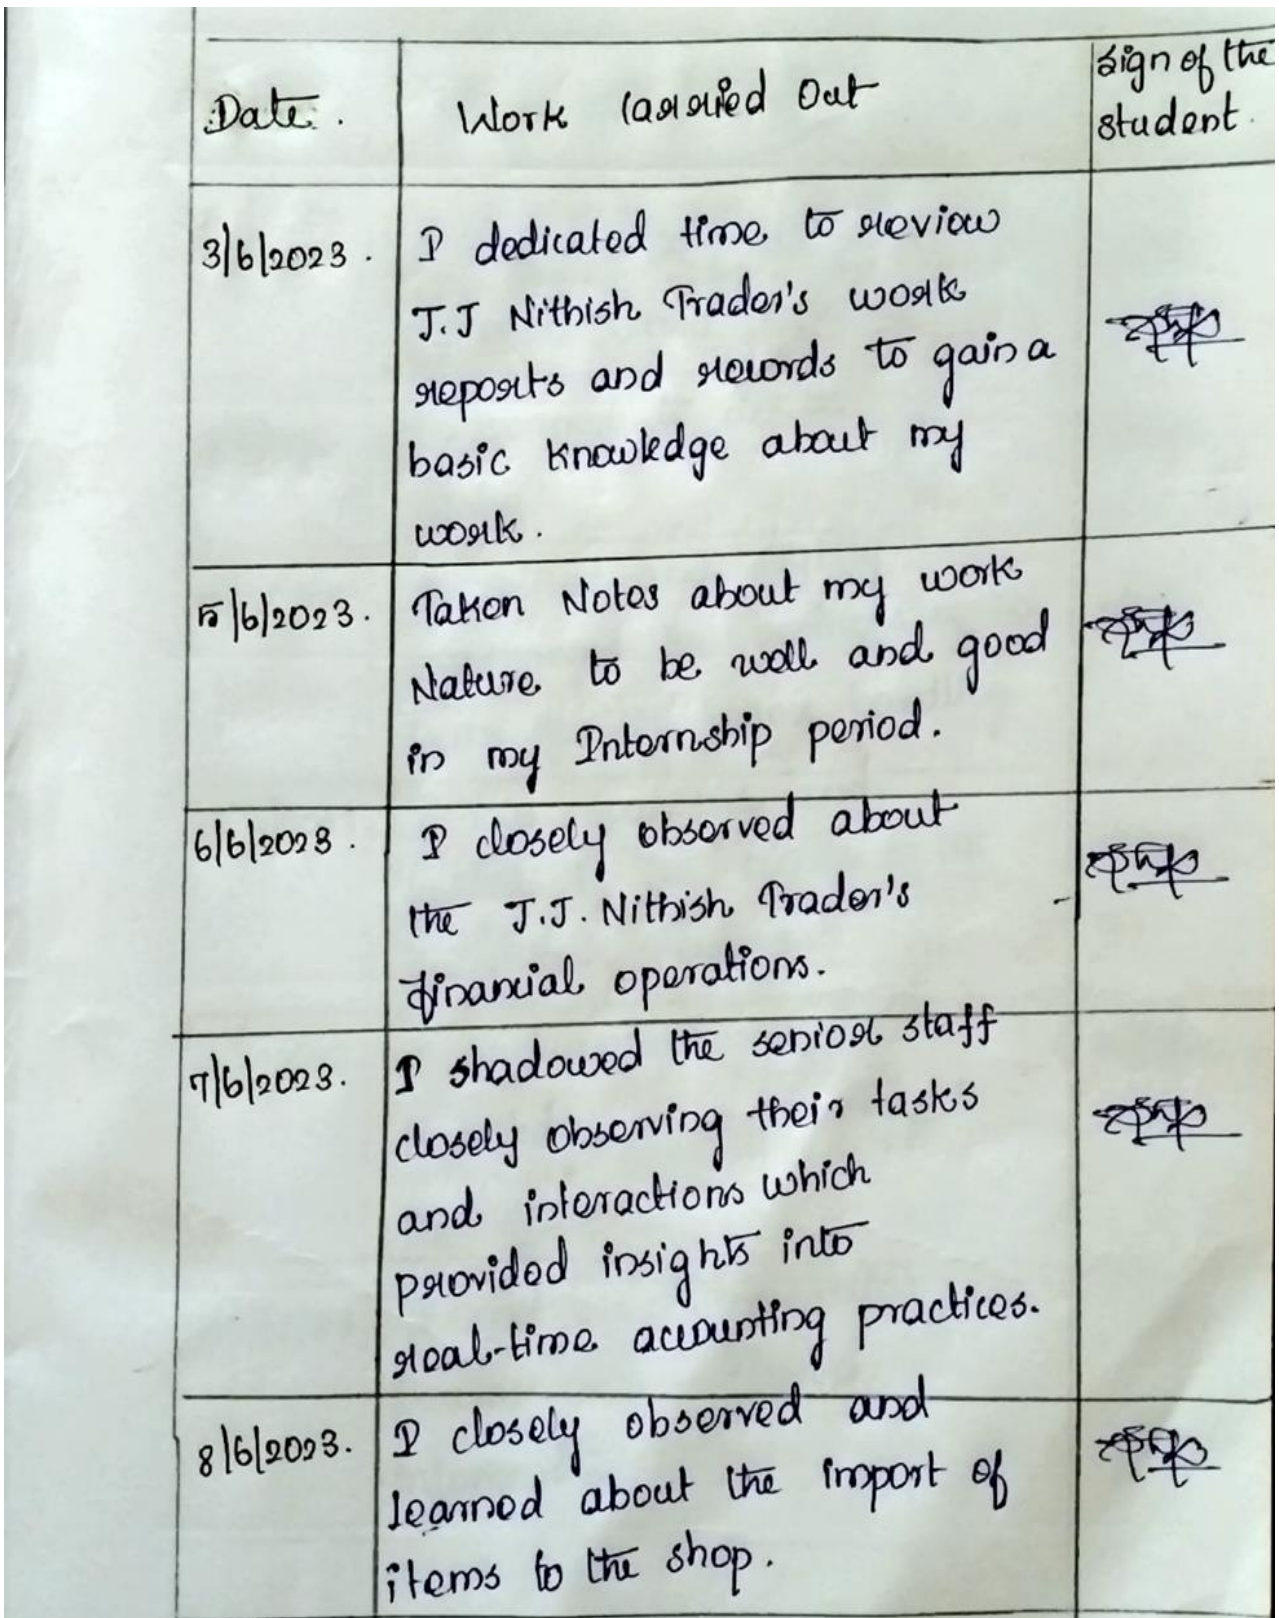 Date.
Work Carried Out
Sign of the
student.
3/6/2023.
I dedicated time to review
J.J Nithish Trader's work
reports and records to gain a
basic knowledge about my
work.
5/6/2023.
Taken Notes about my work
Nature to be well and good
in my Internship period.
6/6/2023.
I closely observed about
the J.J. Nithish Trader's
financial operations.
7/6/2023.
I shadowed the senior staff
closely observing their tasks
and interactions which
provided insights into
real-time accounting practices.
8/6/2023.
I closely observed and
learned about the import of
items to the shop.